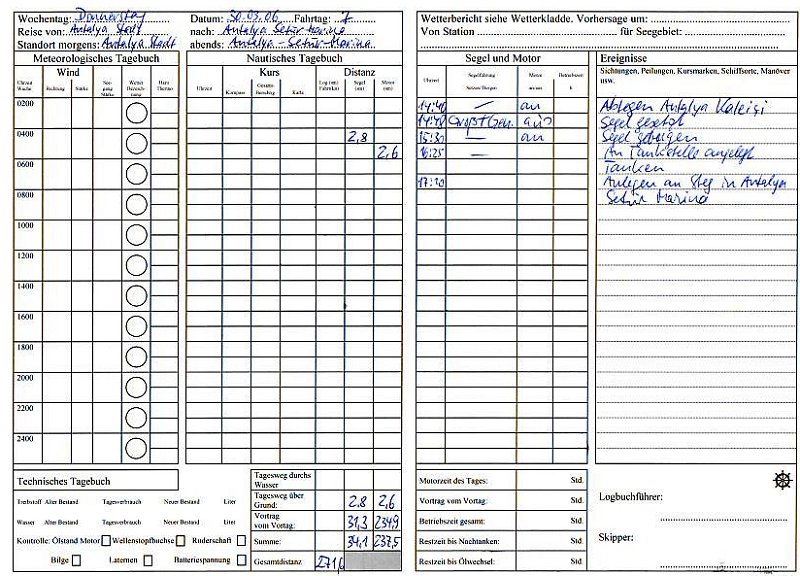 Wochentag: Donnerstag Datum: 30.03.06 Fahrtag: 7
Reise von: Antalya Stadt nach: Antalya Setur Marina
Standort morgens: Antalya Stadt abends: Antalya - Setur - Marina
Wetterbericht siehe Wetterkladde. Vorhersage um:
Von Station für Seegebiet:
Meteorologisches Tagebuch Nautisches Tagebuch Segel und Motor Ereignisse
Wind Kurs Distanz
Sichtungen, Peilungen, Kursmarken, Schiffsorte, Manöver
usw.
Uhrzeit Richtung Stärke Uhrzeit Kompass Karte Uhrzeit Segelführung Motor
0200
14:40 — an Ablegen Antalya Kaleiçi
aus Segel gesetzt
0400 2,8 15:30 — an Segel geborgen
2,6 16:25 — An Tankstelle angelegt
0600 Tanken
17:20 Anlegen an Steg in Antalya
0800 Setur Marina
1000
1200
1400
1600
1800
2000
2200
2400
Technisches Tagebuch
Treibstoff Alter Bestand Tagesverbrauch Neuer Bestand Liter
Wasser Alter Bestand Tagesverbrauch Neuer Bestand Liter
Kontrolle: Ölstand Motor Wellenstopfbuchse Ruderschaft
Bilge Laternen Batteriespannung
Tagesweg durchs
Wasser
Tagesweg über
Grund: 2,8 2,6
Vortrag
vom Vortag: 31,3 234,9
Summe: 34,1 237,5
Gesamtdistanz 271,6
Motorzeit des Tages: Std.
Vortrag vom Vortag: Std.
Betriebszeit gesamt: Std.
Restzeit bis Nachtanken: Std.
Restzeit bis Ölwechsel: Std.
Logbuchführer:
Skipper: